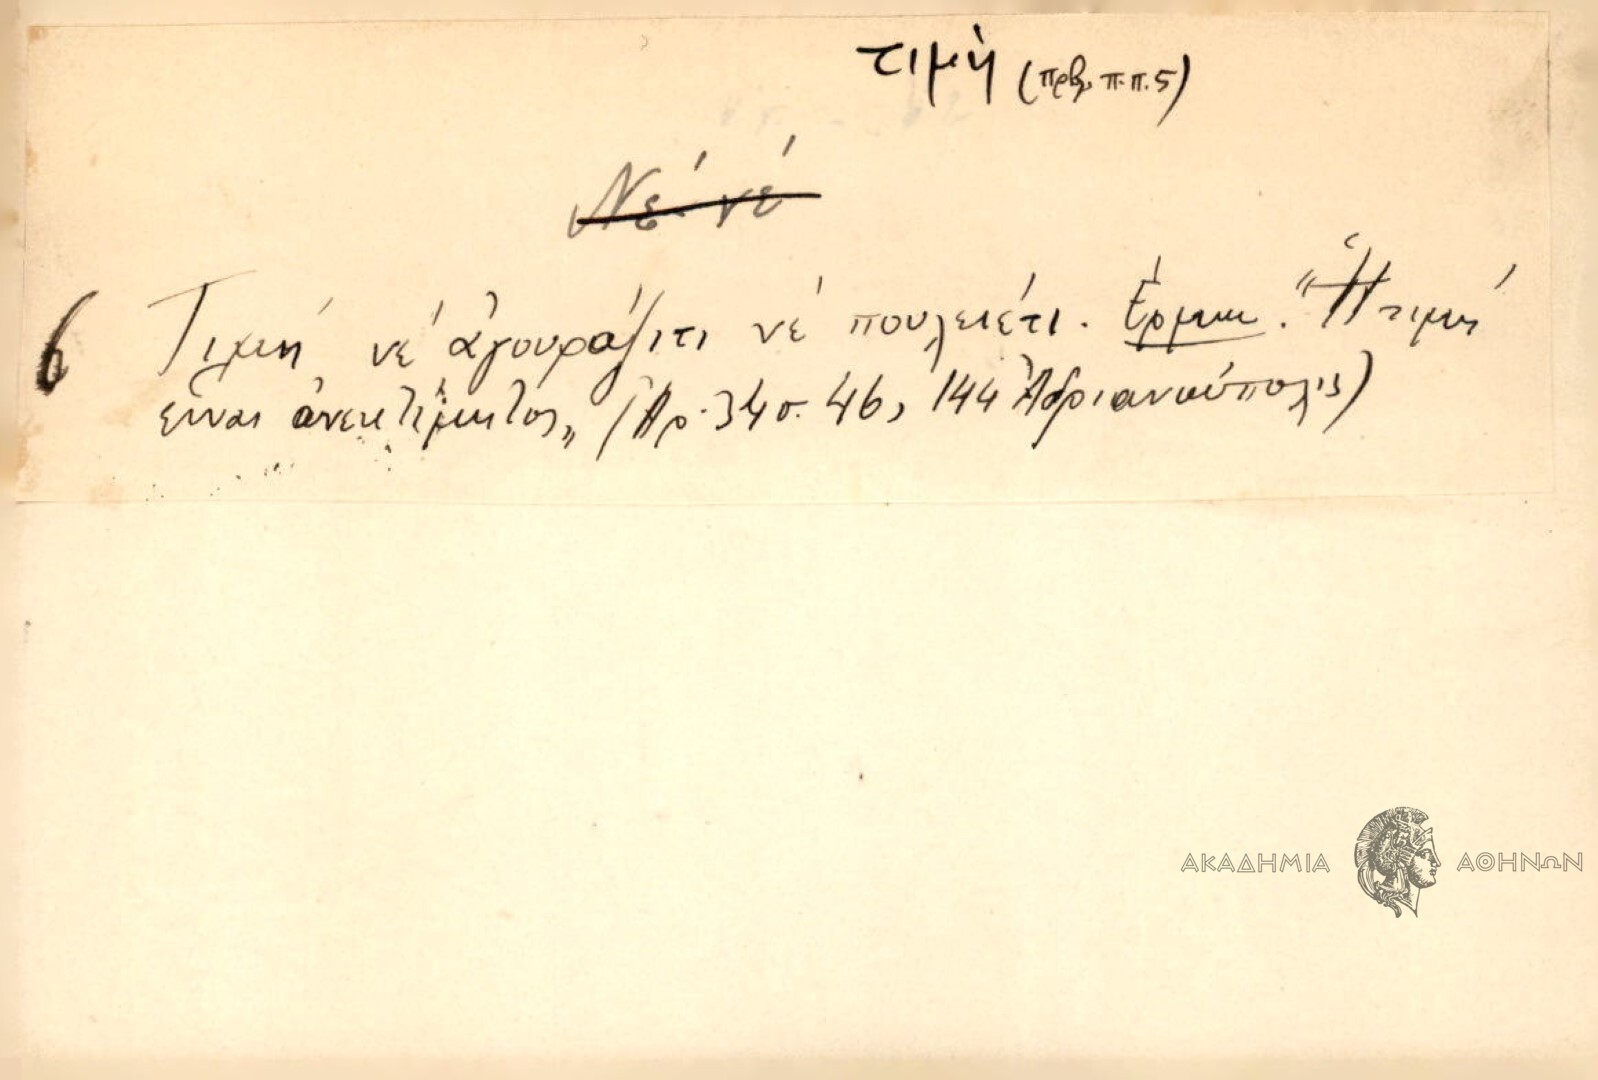 τιμὴ (πρβ. π.π.5)
Νέ-νέ
6 Τιμή νέ ἀγουράζιτι νέ πουλειέτι. Ἑρμην. "Ἡ τιμή
εἶναι ἀνεκτίμητος" (Ἀρ. 34 σ. 46, 144 Ἀδριανούπολις)
ΑΚΑΔΗΜΙΑ ΑΘΗΝΩΝ